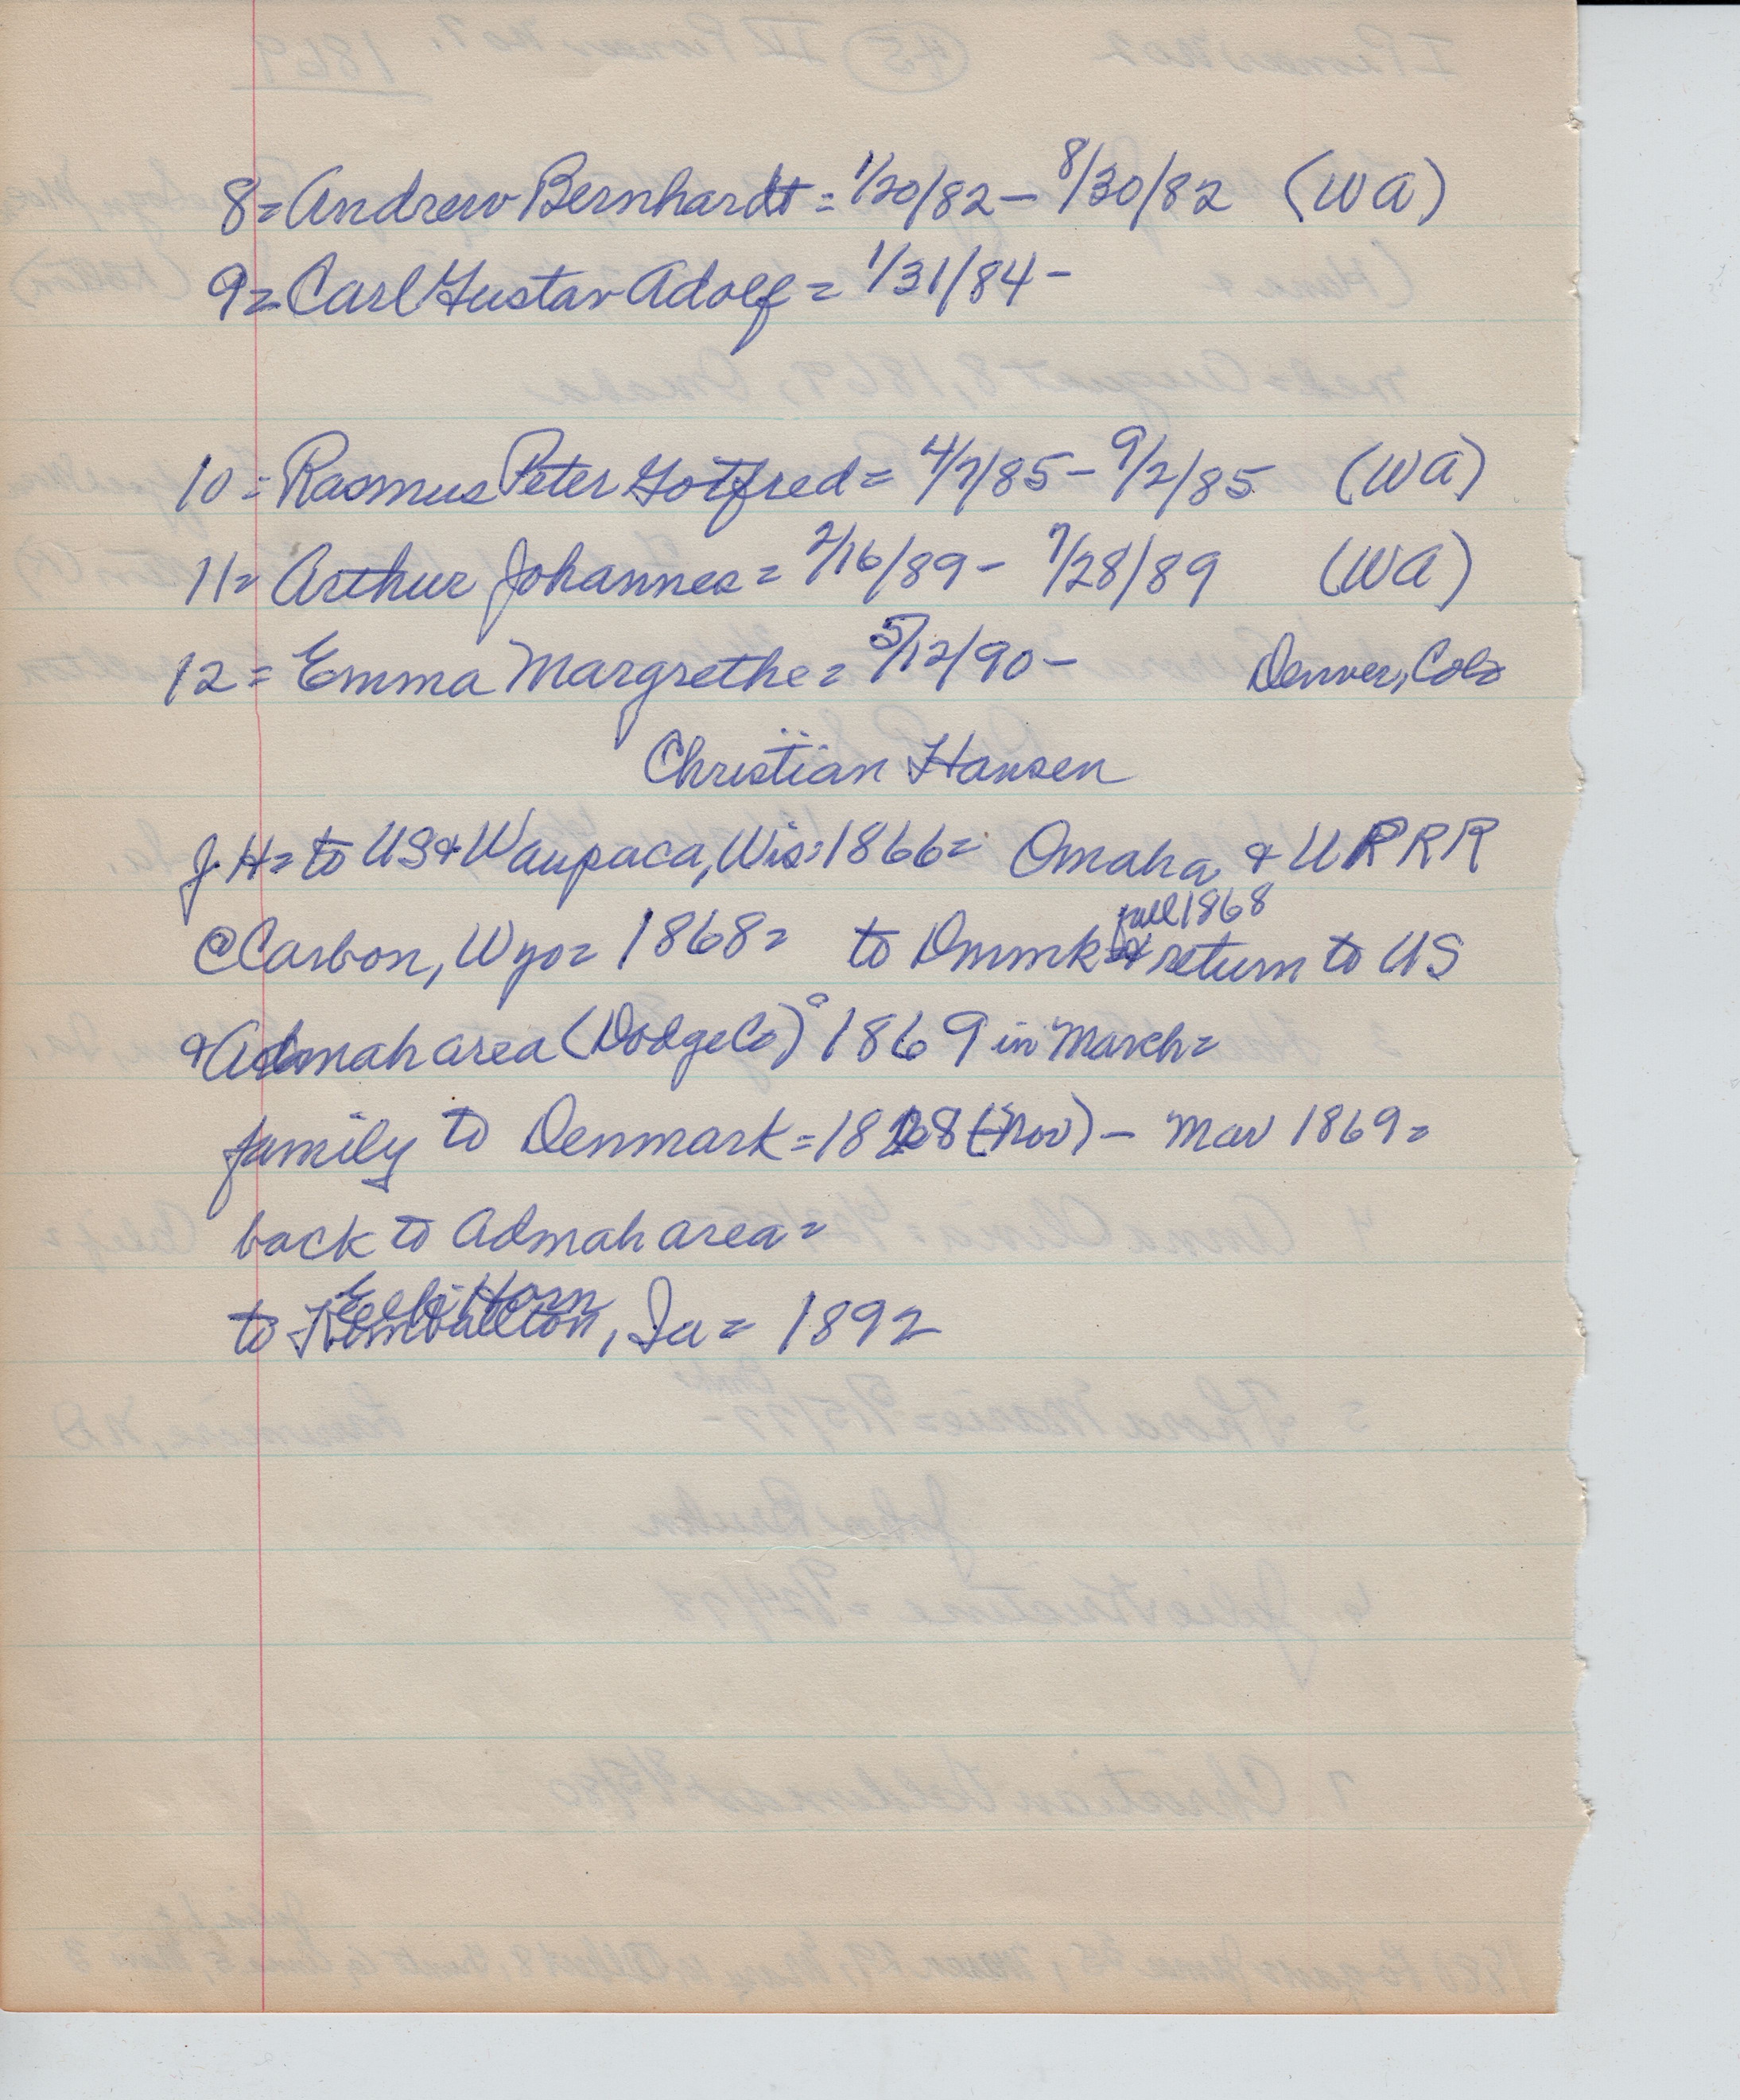 8= Andrew Bernhardt = 1/20/82 – 8/30/82 (WA)
9= Carl Gustav Adolf = 1/31/84 –
10= Rasmus Peter Gotfred = 4/7/85 – 9/2/85 (WA)
11= Arthur Johannes = 2/16/89 – 7/28/89 (WA)
12= Emma Margrethe = 5/12/90 – Denver, Colo
Christian Hansen
J.H= to US & Waupaca, Wis: 1866= Omaha & UPRR
@ Carbon, Wyo= 1868= to Dnmrk fall 1868 & return to US
& Admah area (Dodge Co) 1869 in March=
family to Denmark = 1868 (Nov) – Mar 1869=
back to Admah area=
to Elk Horn, Ia= 1892